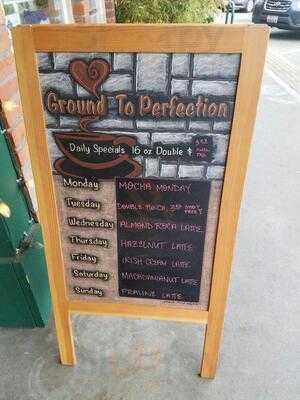 Ground To Perfection
Daily Specials 16 oz Double $
Monday MOCHA MONDAY
Tuesday DOUBLE PUNCH, 3RD SHOT FREE!
Wednesday ALMOND ROCA LATTE
Thursday HAZELNUT LATTE
Friday IRISH CREAM LATTE
Saturday MACADAMIANUT LATTE
Sunday PRALINE LATTE